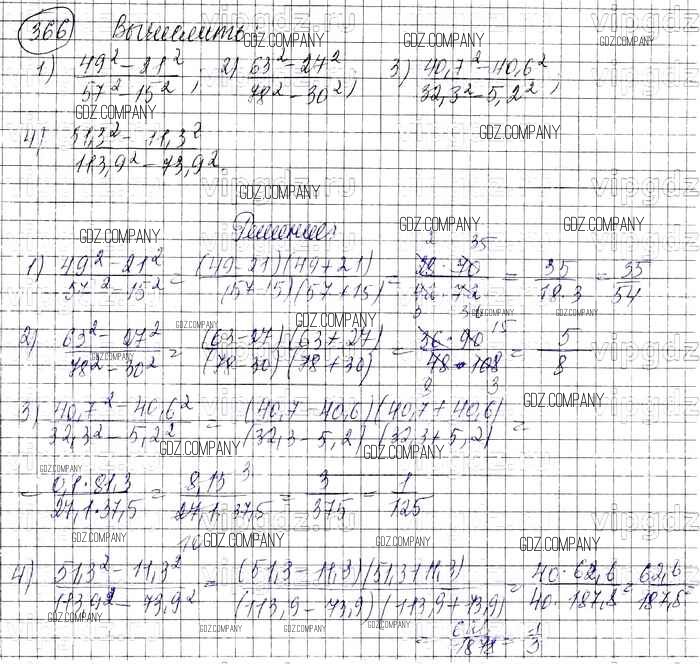 366 Вычислить:
1) (49² - 21²)/(57² - 15²); 2) (63² - 27²)/(78² - 30²); 3) (40,7² - 40,6²)/(32,3² - 5,2²);
4) (51,3² - 11,3²)/(113,9² - 73,9²).
Решение:
1) (49² - 21²)/(57² - 15²) = ((49-21)(49+21))/((57-15)(57+15)) = (28·70)/(42·72) = 35/(18·3) = 35/54
2) (63² - 27²)/(78² - 30²) = ((63-27)(63+27))/((78-30)(78+30)) = (36·90)/(48·108) = 5/8
3) (40,7² - 40,6²)/(32,3² - 5,2²) = ((40,7-40,6)(40,7+40,6))/((32,3-5,2)(32,3+5,2)) =
= (0,1·81,3)/(27,1·37,5) = 8,13/(27,1·37,5) = 3/375 = 1/125
4) (51,3² - 11,3²)/(113,9² - 73,9²) = ((51,3-11,3)(51,3+11,3))/((113,9-73,9)(113,9+73,9)) = (40·62,6)/(40·187,8) = 62,6/187,8 =
= 626/1878 = 1/3
GDZ.COMPANY
vipgdz.ru